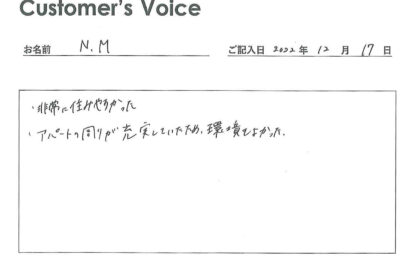 Customer's Voice
お名前 N.M ご記入日 2022 年 12 月 17 日
・非常に住みやすかった
・アパートの周りが充実していたため、環境もよかった。